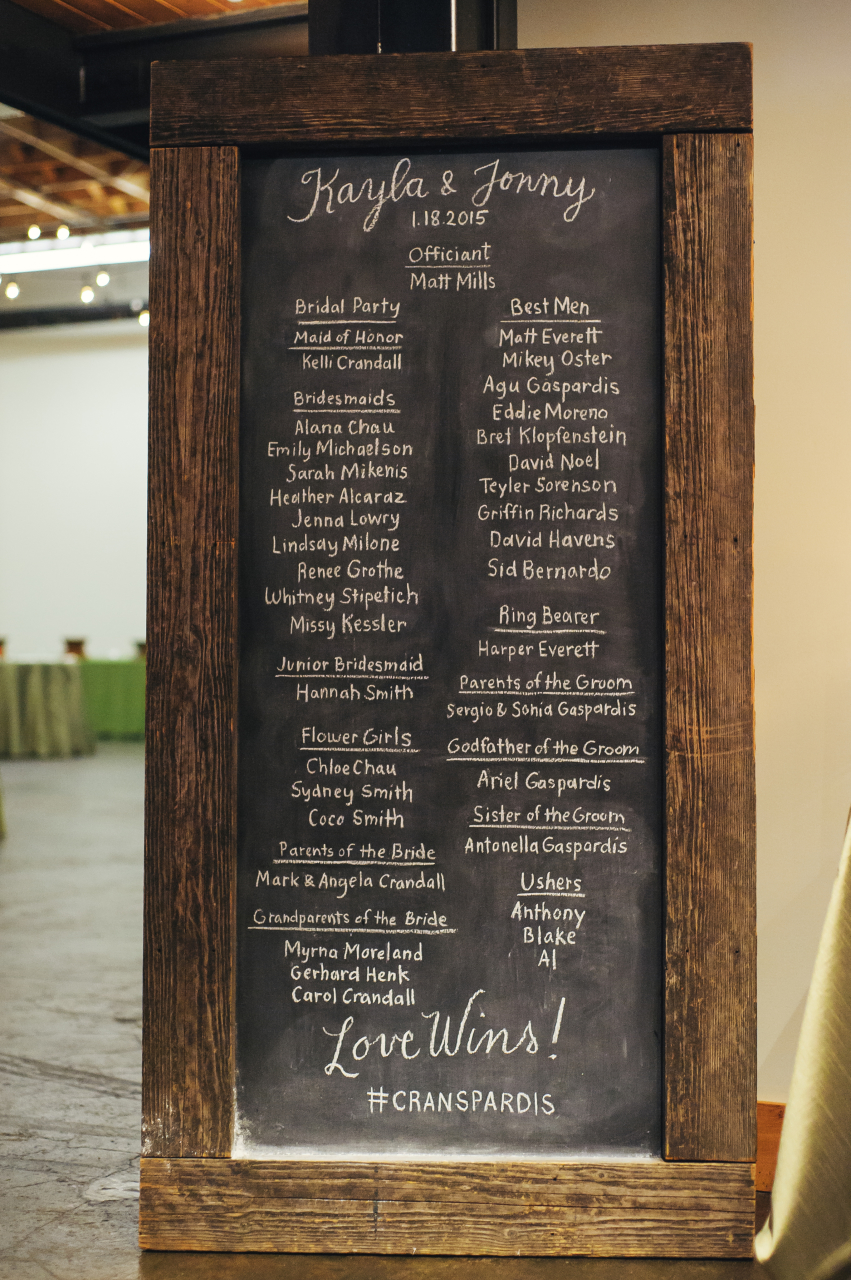 Kayla & Jonny
1.18.2015
Officiant
Matt Mills
Bridal Party
Maid of Honor
Kelli Crandall
Bridesmaids
Alana Chau
Emily Michaelson
Sarah Mikenis
Heather Alcaraz
Jenna Lowry
Lindsay Milone
Renee Grothe
Whitney Stipetich
Missy Kessler
Junior Bridesmaid
Hannah Smith
Flower Girls
Chloe Chau
Sydney Smith
Coco Smith
Parents of the Bride
Mark & Angela Crandall
Grandparents of the Bride
Myrna Moreland
Gerhard Henk
Carol Crandall
Best Men
Matt Everett
Mikey Oster
Agu Gaspardis
Eddie Moreno
Bret Klopfenstein
David Noel
Teyler Sorenson
Griffin Richards
David Havens
Sid Bernardo
Ring Bearer
Harper Everett
Parents of the Groom
Sergio & Sonia Gaspardis
Godfather of the Groom
Ariel Gaspardis
Sister of the Groom
Antonella Gaspardis
Ushers
Anthony
Blake
Al
Love Wins!
#CRANSPARDIS